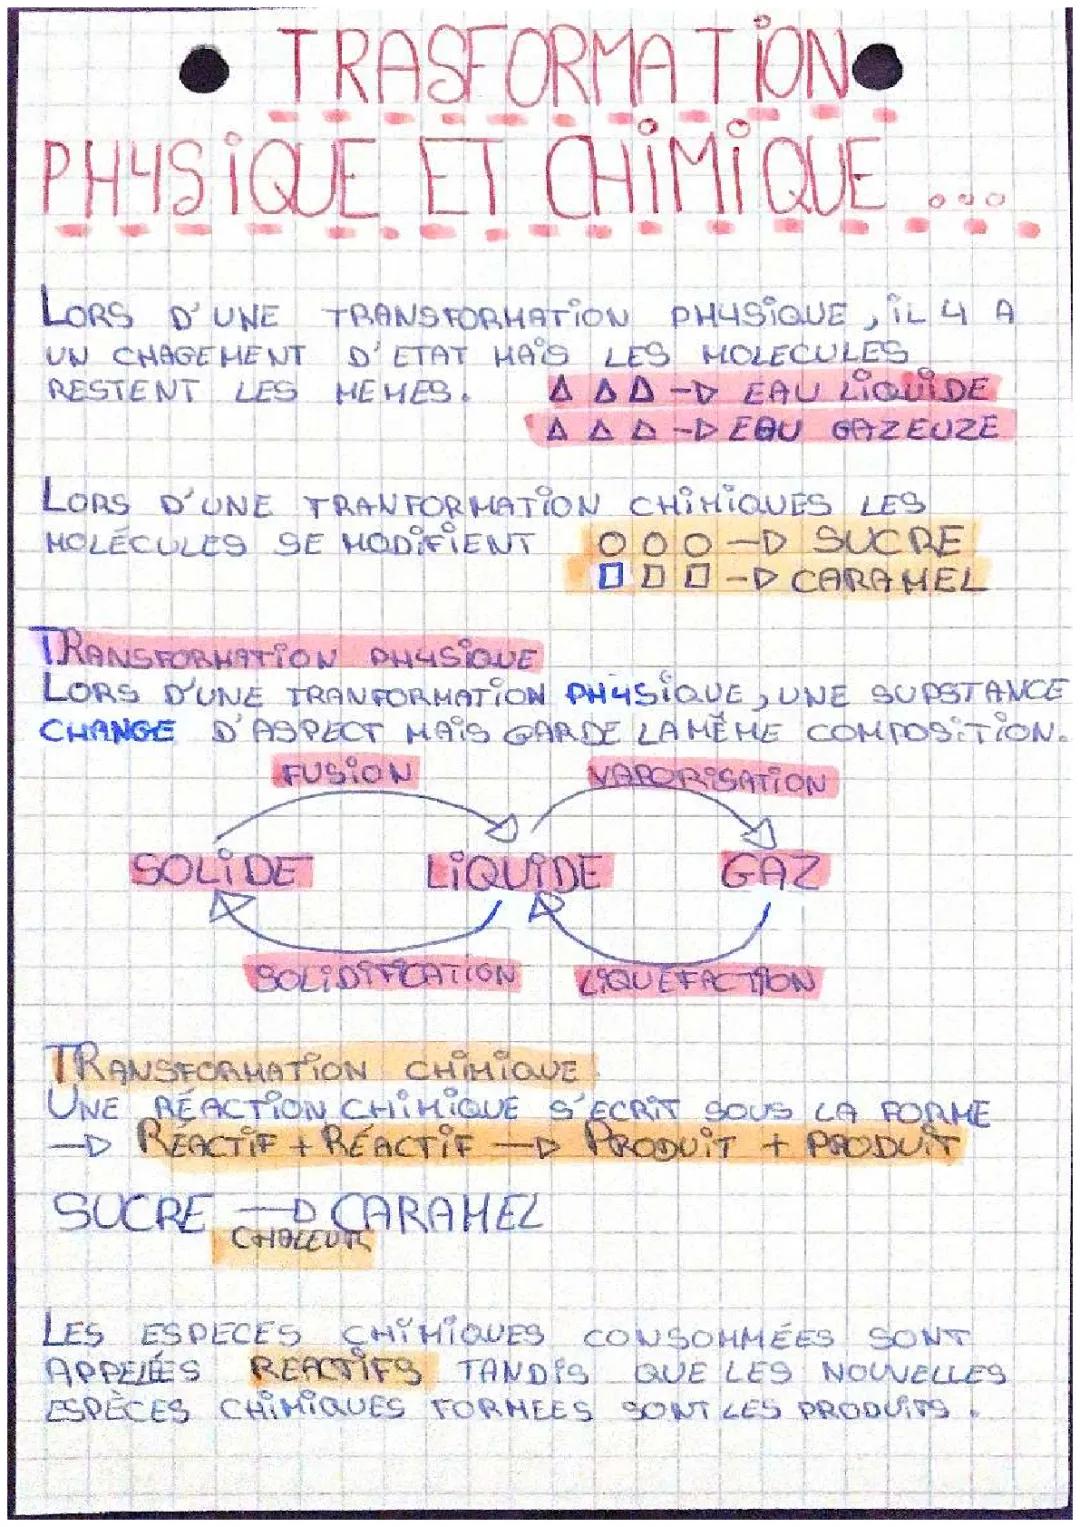 TRASFORMATION
PHYSIQUE ET CHIMIQUE ...
LORS D'UNE TRANSFORMATION PHYSIQUE, IL Y A
UN CHAGEMENT D'ETAT MAIS LES MOLECULES
RESTENT LES MEMES. △ △ △ → EAU LIQUIDE
△ △ △ → EAU GAZEUZE
LORS D'UNE TRANFORMATION CHIMIQUES LES
MOLÉCULES SE MODIFIENT ○ ○ ○ → SUCRE
□ □ □ → CARAMEL
TRANSFORMATION PHYSIQUE
LORS D'UNE TRANFORMATION PHYSIQUE, UNE SUPSTANCE
CHANGE D'ASPECT MAIS GARDE LA MÊME COMPOSITION.
FUSION VAPORISATION
SOLIDE LIQUIDE GAZ
SOLIDIFICATION LIQUEFACTION
TRANSFORMATION CHIMIQUE
UNE RÉACTION CHIMIQUE S'ECRIT SOUS LA FORME
→ RÉACTIF + RÉACTIF → PRODUIT + PRODUIT
SUCRE → CARAMEL
CHALEUR
LES ESPECES CHIMIQUES CONSOMMÉES SONT
APPELÉES REACTIFS TANDIS QUE LES NOUVELLES
ESPÈCES CHIMIQUES FORMEES SONT LES PRODUITS.